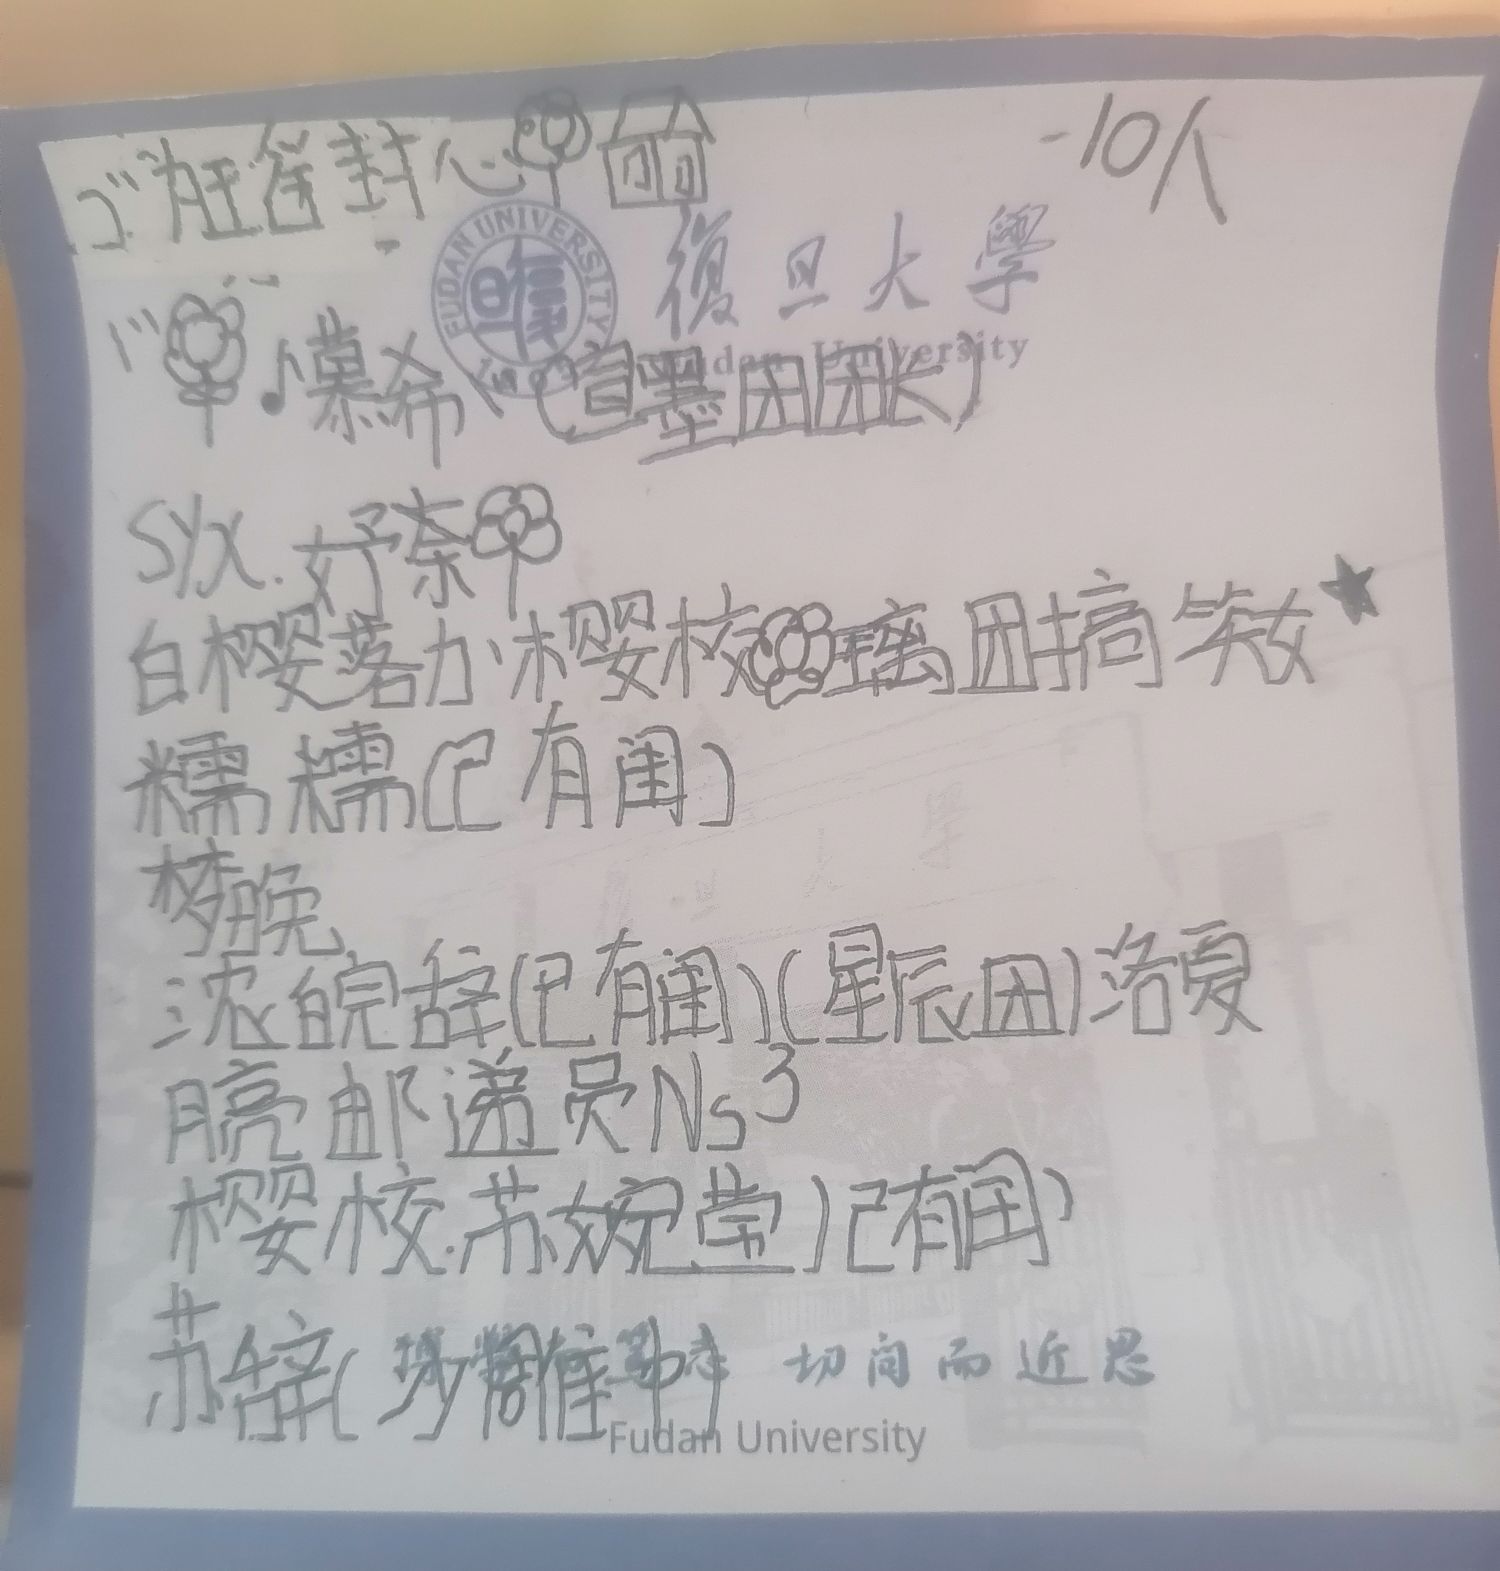 封心
-10人
FUDAN UNIVERSITY
復旦大學
Fudan University
慕希(首墨団团长)
syx.妤奈
白樱落か樱校 璃团搞笑女★
糯糯(已有闺)
梦晚
浓皖辞(已有闺)(星辰团)洛夏
亮邮递员Ns³
樱校.苏婉莹)已有闺)
苏辞(
切问而近思
Fudan University